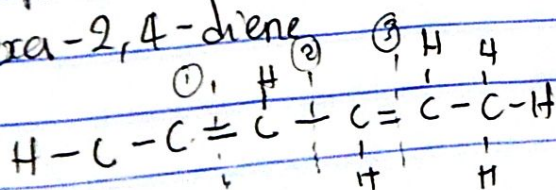 xa-2,4-diene
① ② ③
H H H
H-C-C=C-C=C-C-H
H H